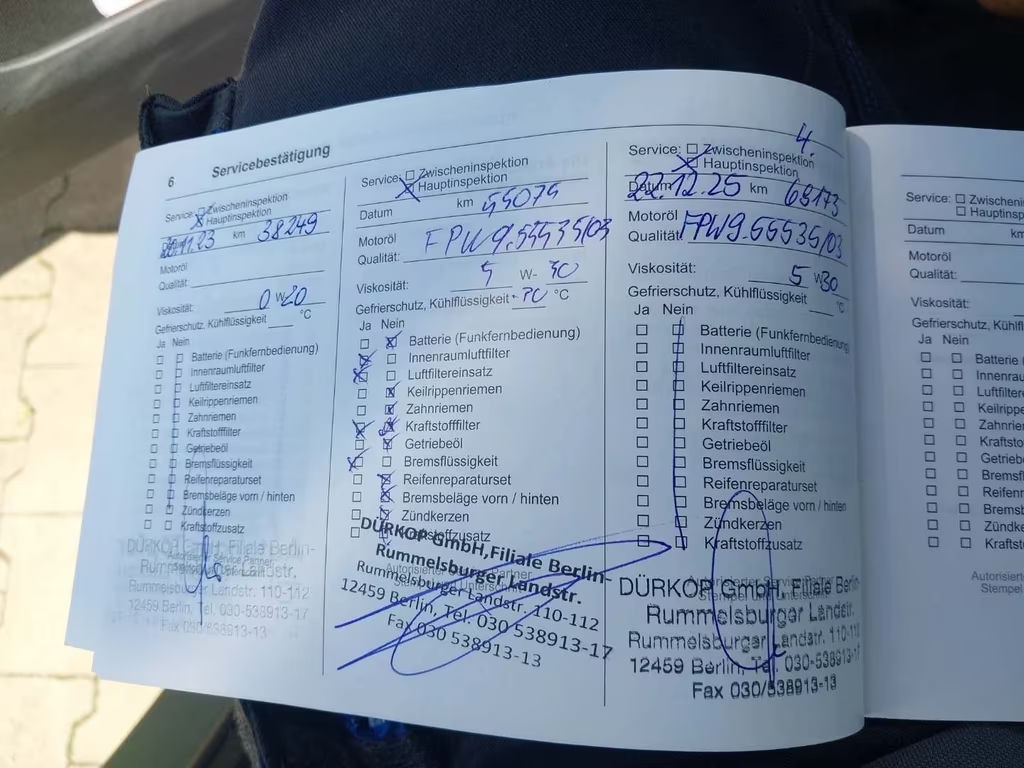 6 Servicebestätigung
Service: Zwischeninspektion
Hauptinspektion
Datum 11.23 km 38249
Motoröl
Qualität:
Viskosität: 0 W 20
Gefrierschutz, Kühlflüssigkeit °C
Ja Nein
Batterie (Funkfernbedienung)
Innenraumluftfilter
Luftfiltereinsatz
Keilrippenriemen
Zahnriemen
Kraftstofffilter
Getriebeöl
Bremsflüssigkeit
Reifenreparaturset
Bremsbeläge vorn / hinten
Zündkerzen
Kraftstoffzusatz
DÜRKOP GmbH, Filiale Berlin-
Rummelsburger Landstr.
Rummelsburger Landstr. 110-112
12459 Berlin, Tel. 030-538913-17
Fax 030/538913-13
Service: Zwischeninspektion
Hauptinspektion
Datum km 54074
Motoröl
Qualität: FPW9.55535/03
Viskosität: 5 W- 30
Gefrierschutz, Kühlflüssigkeit - 30 °C
Ja Nein
Batterie (Funkfernbedienung)
Innenraumluftfilter
Luftfiltereinsatz
Keilrippenriemen
Zahnriemen
Kraftstofffilter
Getriebeöl
Bremsflüssigkeit
Reifenreparaturset
Bremsbeläge vorn / hinten
Zündkerzen
Kraftstoffzusatz
Autorisierter Service Partner
Stempel und Unterschrift
DÜRKOP GmbH, Filiale Berlin-
Rummelsburger Landstr.
Rummelsburger Landstr. 110-112
12459 Berlin, Tel. 030 538913-17
Fax 030 538913-13
4.
Service: Zwischeninspektion
Hauptinspektion
Datum 22.12.25 km 69173
Motoröl
Qualität: FPW9.55535/03
Viskosität: 5 W30
Gefrierschutz, Kühlflüssigkeit °C
Ja Nein
Batterie (Funkfernbedienung
Innenraumluftfilter
Luftfiltereinsatz
Keilrippenriemen
Zahnriemen
Kraftstofffilter
Getriebeöl
Bremsflüssigkeit
Reifenreparaturset
Bremsbeläge vorn /hinten
Zündkerzen
Kraftstoffzusatz
DÜRKOP GmbH, Filiale Berlin-
Rummelsburger Landstr.
Rummelsburger Landstr. 110-112
12459 Berlin, Tel. 030-538913-17
Fax 030/538913-13
Service: Zwischenins
Hauptinsp
Datum km
Motoröl
Qualität:
Viskosität:
Gefrierschutz, Kühlflüssig
Ja Nein
Batterie (
Innenrau
Luftfilter
Keilrippe
Zahnrie
Kraftsto
Getrieb
Bremsf
Reifen
Bremsb
Zündk
Kraftst
Autorisiert
Stempel